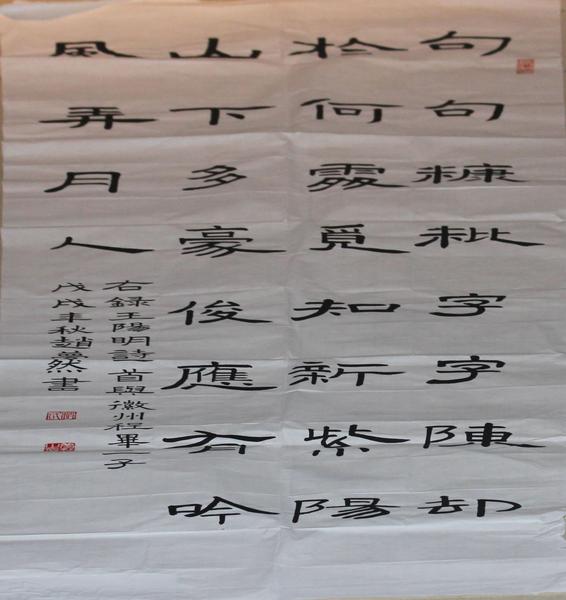 句句糠粃字字陳却
於何處覓知新紫陽
山下多豪俊應有吟
風弄月人
右錄王陽明詩首與徽州程畢二子
戊戌年秋趙夢然書